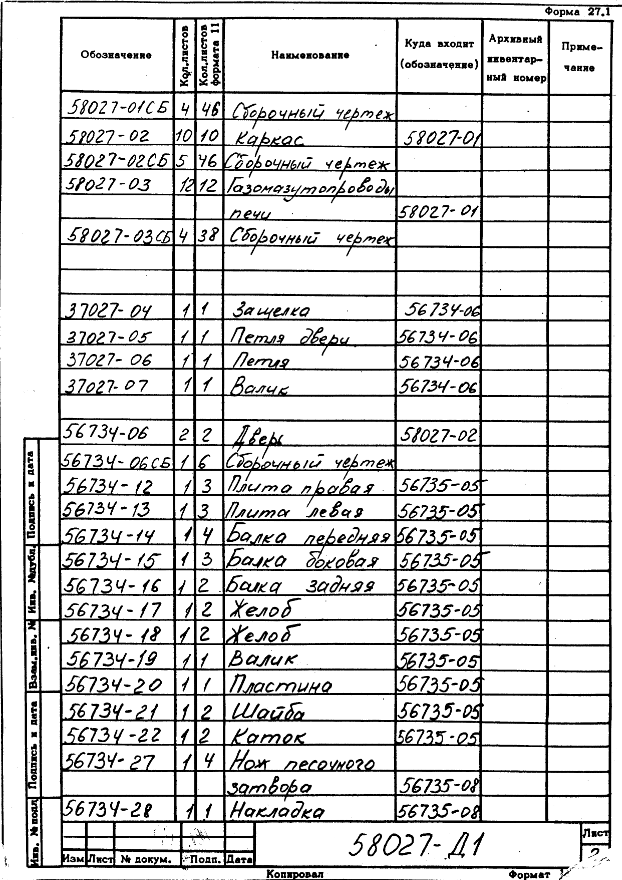 Форма 27.1
Обозначение Кол.листов Кол.листов формата 11 Наименование Куда входит (обозначение) Архивный инвентарный номер Примечание
58027-01СБ 4 46 Сборочный чертеж
58027-02 10 10 Каркас 58027-01
58027-02СБ 5 46 Сборочный чертеж
58027-03 12 12 Газомазутопроводы
печи 58027-01
58027-03СБ 4 38 Сборочный чертеж
37027-04 1 1 Защелка 56734-06
37027-05 1 1 Петля двери 56734-06
37027-06 1 1 Петля 56734-06
37027-07 1 1 Валик 56734-06
56734-06 2 2 Дверь 58027-02
56734-06СБ 1 6 Сборочный чертеж
56734-12 1 3 Плита правая 56735-05
56734-13 1 3 Плита левая 56735-05
56734-14 1 4 Балка передняя 56735-05
56734-15 1 3 Балка боковая 56735-05
56734-16 1 2 Балка задняя 56735-05
56734-17 1 2 Желоб 56735-05
56734-18 1 2 Желоб 56735-05
56734-19 1 1 Валик 56735-05
56734-20 1 1 Пластина 56735-05
56734-21 1 2 Шайба 56735-05
56734-22 1 2 Каток 56735-05
56734-27 1 4 Нож песочного
затвора 56735-08
56734-28 1 1 Накладка 56735-08
Подпись и дата
Инв. №дубл.
Взам.инв. №
Подпись и дата
Инв. №подл
Изм Лист № докум. Подп. Дата
58027-Д1
Лист
Копировал Формат